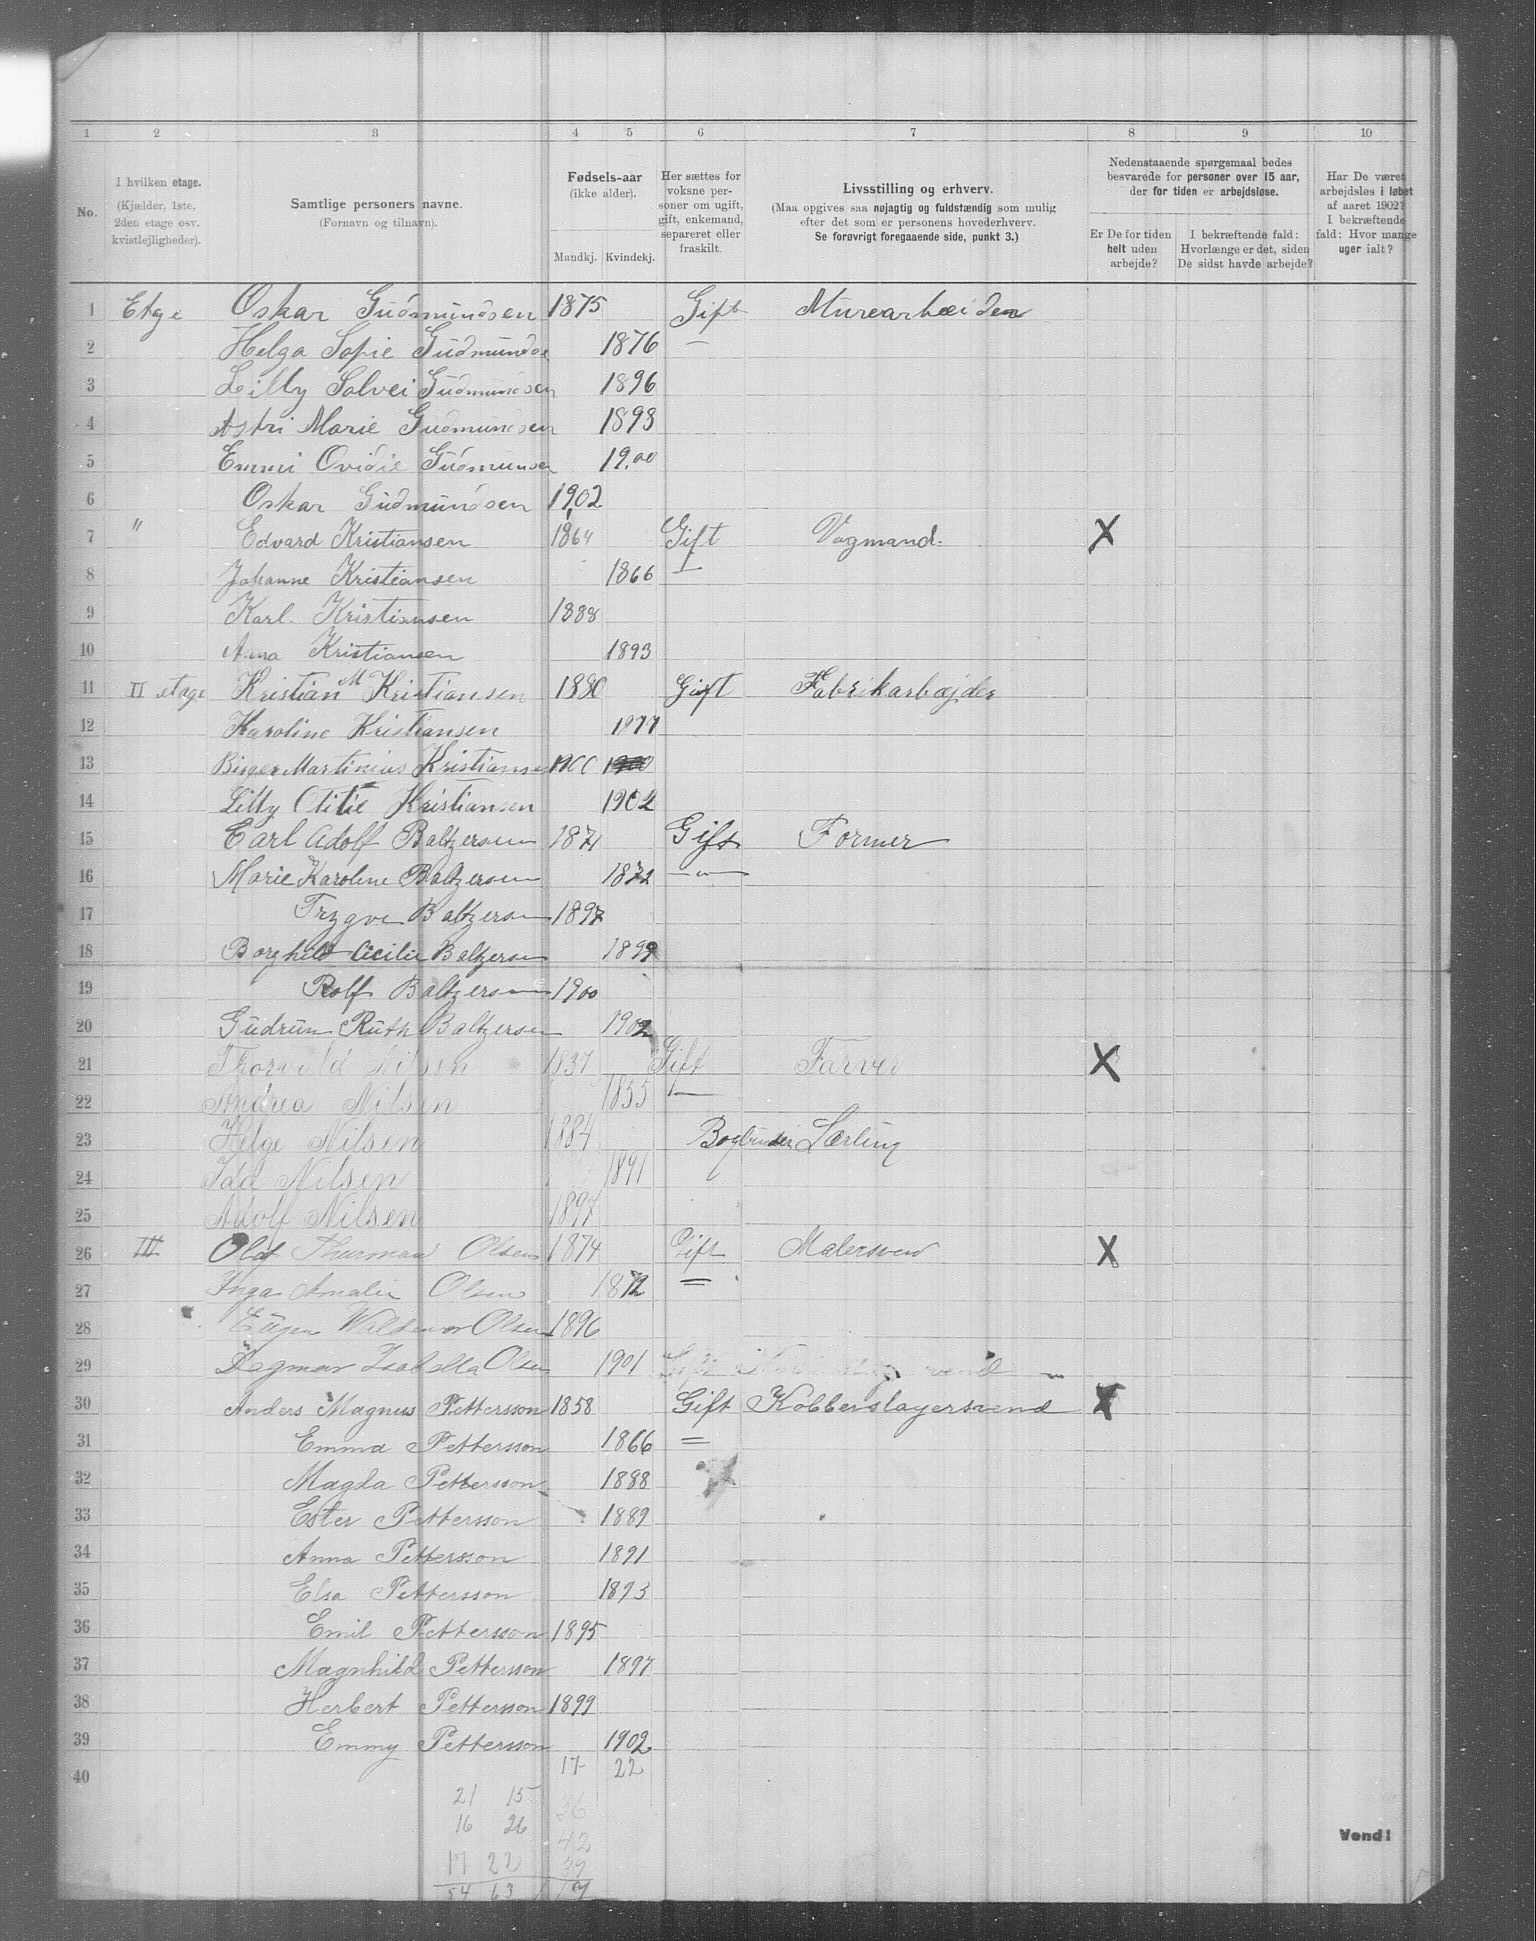 1 2 3 4 5 6 7 8 9 10
No.
I hvilken etage.
(Kjælder, 1ste,
2den etage osv.
kvistlejligheder).
Samtlige personers navne.
(Fornavn og tilnavn).
Fødsels-aar
(ikke alder).
Mandkj. Kvindekj.
Her sættes for
voksne per-
soner om ugift,
gift, enkemand,
separeret eller
fraskilt.
Livsstilling og erhverv.
(Maa opgives saa nøjagtig og fuldstændig som mulig
efter det som er personens hovederhverv.
Se forøvrigt foregaaende side, punkt 3.)
Nedenstaaende spørgsmaal bedes
besvarede for personer over 15 aar,
der for tiden er arbejdsløse.
Er De for tiden
helt uden
arbejde?
I bekræftende fald:
Hvorlænge er det, siden
De sidst havde arbejde?
Har De været
arbejdsløs i løbet
af aaret 1902?
I bekræftende
fald: Hvor mange
uger ialt?
1 Etage Oskar Gudmundsen 1875 Gift Murearbeiden
2 Helga Sofie Gudmundse 1876 —
3 Lilly Solvei Gudmundsen 1896
4 Astri Marie Gudmundsen 1898
5 Emmi Ovidie Gudmunsen 19.00
6 Oskar Gudmundsen 1902
7 " Edvard Kristiansen 1864 Gift Vogmand. X
8 Johanne Kristiansen 1866 —
9 Karl. Kristiansen 1888
10 Anna Kristiansen 1893
11 II etage Kristian M Kristiansen 1880 Gift Fabrikarbejder
12 Karoline Kristiansen 1877
13 Birger Martinius Kristiansen 1900
14 Lilly Otitie Kristiansen 1902
15 Carl Adolf Baltzersen 1871 Gift Former
16 Marie Karoline Baltzersen 1872 —"—
17 Trygve Baltzersen 1897
18 Borghild Cicilie Baltzersen 1899
19 Rolf Baltzersen 1900
20 Gudrun Ruth Baltzersen 1902
21 Thorvald Nilsen 1837 Gift Farver X
22 Andrea Nilsen 1855 —
23 Helge Nilsen 1884 Bogbinder Lærling
24 Ida Nilsen 1891
25 Adolf Nilsen 1897
26 III Olaf Thurman Olsen 1874 Gift Malersven X
27 Inga Amalie Olsen 1872 =
28 Eugen Olsen 1896
29 Dagmar Isabella Olsen 1901
30 Anders Magnus Pettersson 1858 Gift Kobberslagersvend X
31 Emma Pettersson 1866 =
32 Magda Pettersson 1888
33 Ester Pettersson 1889
34 Anna Pettersson 1891
35 Elsa Pettersson 1893
36 Emil Pettersson 1895
37 Magnhild Pettersson 1897
38 Herbert Pettersson 1899
39 Emmy Pettersson 1902
40 17 22
21 15 36
16 26 42
17 22 39
54 63
Vend!